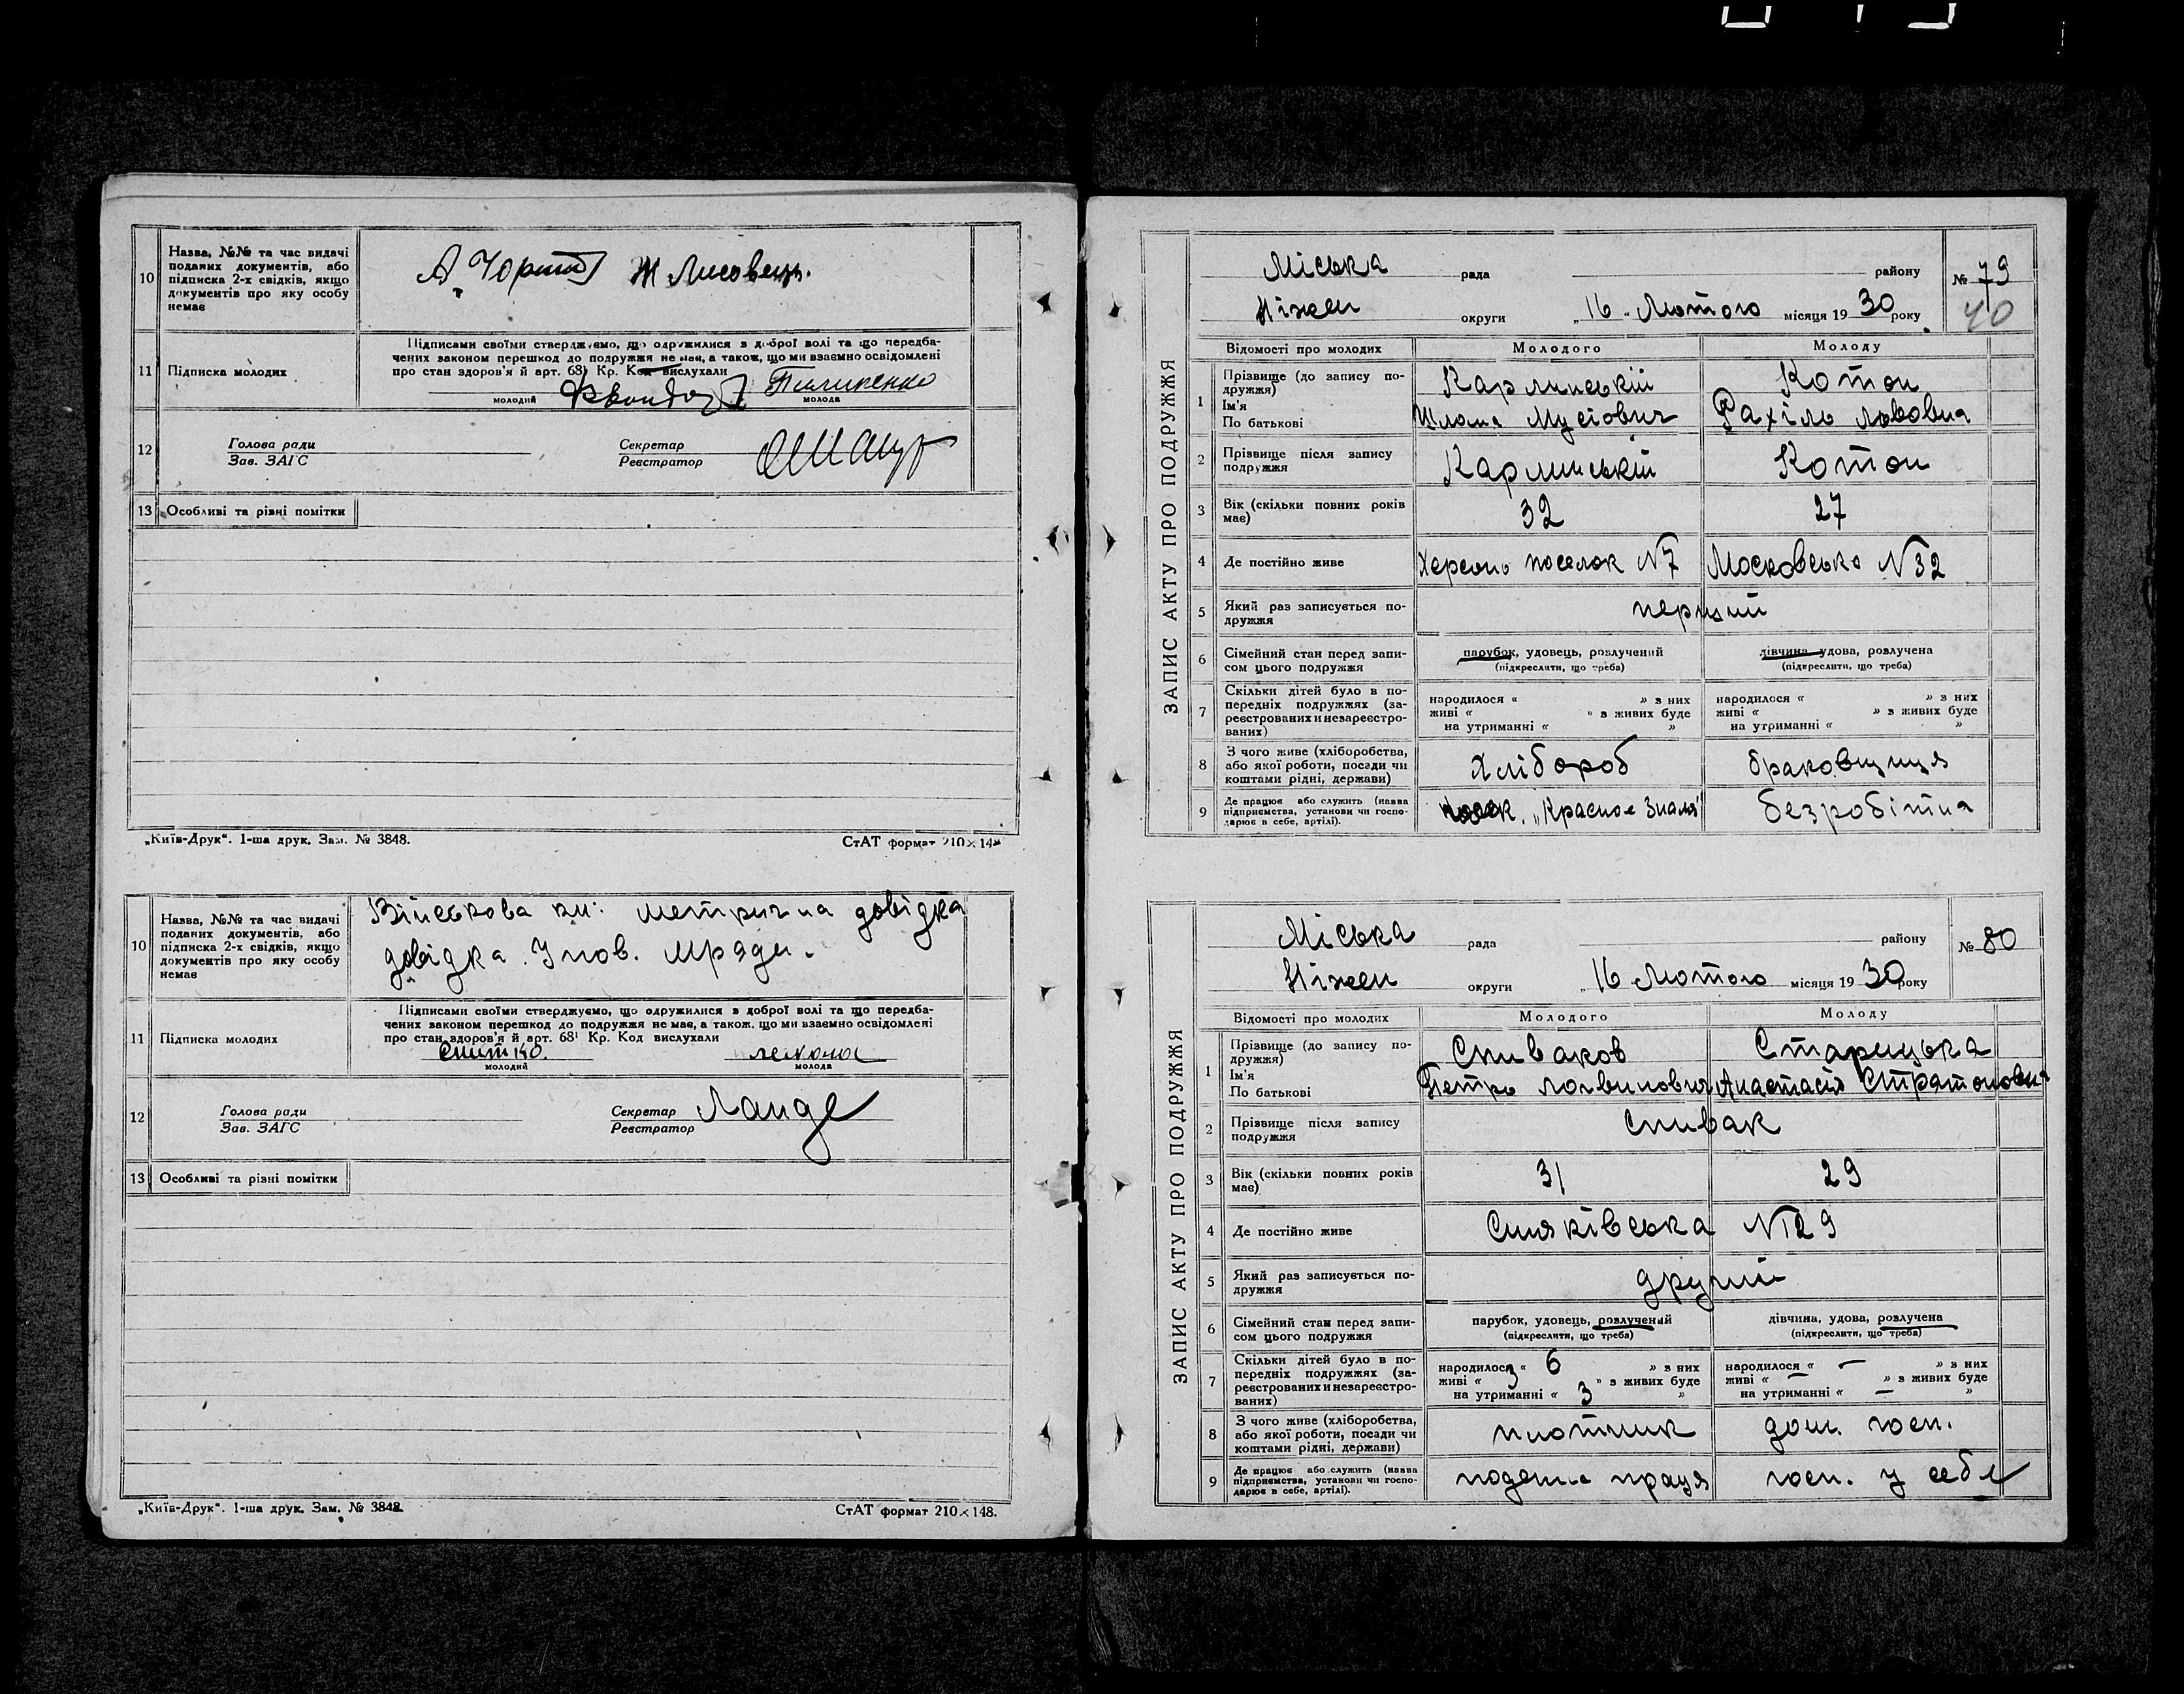 10
Назва, №№ та час видачі
поданих документів, або
підписка 2-х свідків, якщо
документів про яку особу
немає
Ж Лисовець.
11
Підписка молодих
Підписами своїми стверджуємо, що одружилися з доброї волі та що передба-
чених законом перешкод до подружжя не має, а також, що ми взаємно освідомлені
про стан здоров'я й арт. 68¹ Кр. Код вислухали
Пилипенко
молодий
молода
12
Голова ради
Зав. ЗАГС
Секретар
Реєстратор
13
Особливі та рівні помітки
„Київ-Друк“. 1-ша друк. Зам. № 3848.
СтАТ формат 210×148
10
Назва, №№ та час видачі
поданих документів, або
підписка 2-х свідків, якщо
документів про яку особу
немає
Військова кн: метрична довідка
довідка
11
Підписка молодих
Підписами своїми стверджуємо, що одружилися з доброї волі та що передба-
чених законом перешкод до подружжя не має, а також, що ми взаємно освідомлені
про стан здоров'я й арт. 68¹ Кр. Код вислухали
молодий
молода
12
Голова ради
Зав. ЗАГС
Секретар
Реєстратор
Ланде
13
Особливі та різні помітки
„Київ-Друк“. 1-ша друк. Зам. № 3848.
СтАТ формат 210×148.
ЗАПИС АКТУ ПРО ПОДРУЖЖЯ
Міська рада району
№ 79
Ніжен округи „16“ Лютого місяця 1930 року
40
Відомості про молодих
Молодого
Молоду
1
Прізвище (до запису по-
дружжя)
Ім'я
По батькові
Карлинській
Котон
Шлома Мусіович
Рахіль Львовна
2
Прізвище після запису
подружжя
Карлинській
Котон
3
Вік (скільки повних років
має)
32
27
4
Де постійно живе
Херсонь поселок №7
Московська №32
5
Який раз записується по-
дружжя
перший
6
Сімейний стан перед запи-
сом цього подружжя
парубок, удовець, розлучений
(підкреслити, що треба)
дівчина, удова, розлучена
(підкреслити, що треба)
7
Скільки дітей було в по-
передніх подружжях (за-
реєстрованих и незареєстро-
ваних)
народилося « » з них
живі « » з живих буде
на утриманні « »
народилося « » з них
живі « » з живих буде
на утриманні « »
8
З чого живе (хліборобства,
або якої роботи, посади чи
коштами рідні, держави)
Хлібороб
браковщиця
9
Де працює або служить (назва
підприємства, установи чи госпо-
дарює в себе, артілі).
„Красное Знамя“
безробітна
ЗАПИС АКТУ ПРО ПОДРУЖЖЯ
Міська рада району
№ 80
Ніжен округи „16 Лютого місяця 1930 року
Відомості про молодих
Молодого
Молоду
1
Прізвище (до запису по-
дружжя)
Ім'я
По батькові
Спиваков
Старицька
Петро Логвинович
Анастасія Стратоновна
2
Прізвище після запису
подружжя
Спивак
3
Вік (скільки повних років
має)
31
29
4
Де постійно живе
Синяківська №129
5
Який раз записується по-
дружжя
другий
6
Сімейний стан перед запи-
сом цього подружжя
парубок, удовець, розлучений
(підкреслити, що треба)
дівчина, удова, розлучена
(підкреслити, що треба)
7
Скільки дітей було в по-
передніх подружжях (за-
реєстрованих и незареєстро-
ваних)
народилося « 6 » з них
живі « 3 » з живих буде
на утриманні « 3 »
народилося « — » з них
живі « — » з живих буде
на утриманні « — »
8
З чого живе (хліборобства,
або якої роботи, посади чи
коштами рідні, держави)
плотник
дом. госп.
9
Де працює або служить (назва
підприємства, установи чи госпо-
дарює в себе, артілі).
поденна праця
госп. у себе